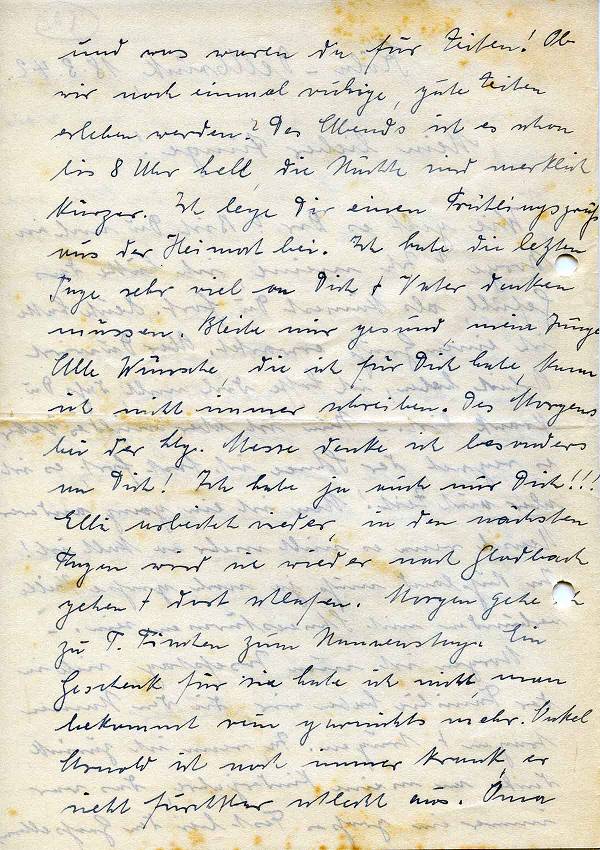 und was waren da für Zeiten! Ob
wir noch einmal ruhige, gute Zeiten
erleben werden? Des Abends ist es schon
bis 8 Uhr hell, die Nächte sind merklich
kürzer. Ich lege Dir einen Frühlingsgruß
aus der Heimat bei. Ich habe die letzten
Tage sehr viel an Dich & Vater denken
müssen. Bleibe mir gesund, mein Junge
Alle Wünsche, die ich für Dich habe, kann
ich nicht immer schreiben. Des Morgens
bei der hlg. Messe denke ich besonders
an Dich! Ich habe ja auch nur Dich!!!
Elli arbeitet wieder, in den nächsten
Tagen wird sie wieder nach Gladbach
gehen & dort schlafen. Morgen gehe ich
zu T. Finchen zum Namenstag. Ein
Geschenk für sie habe ich nicht, man
bekommt rein garnichts mehr. Onkel
Arnold ist noch immer krank, er
sieht furchtbar schlecht aus. Oma